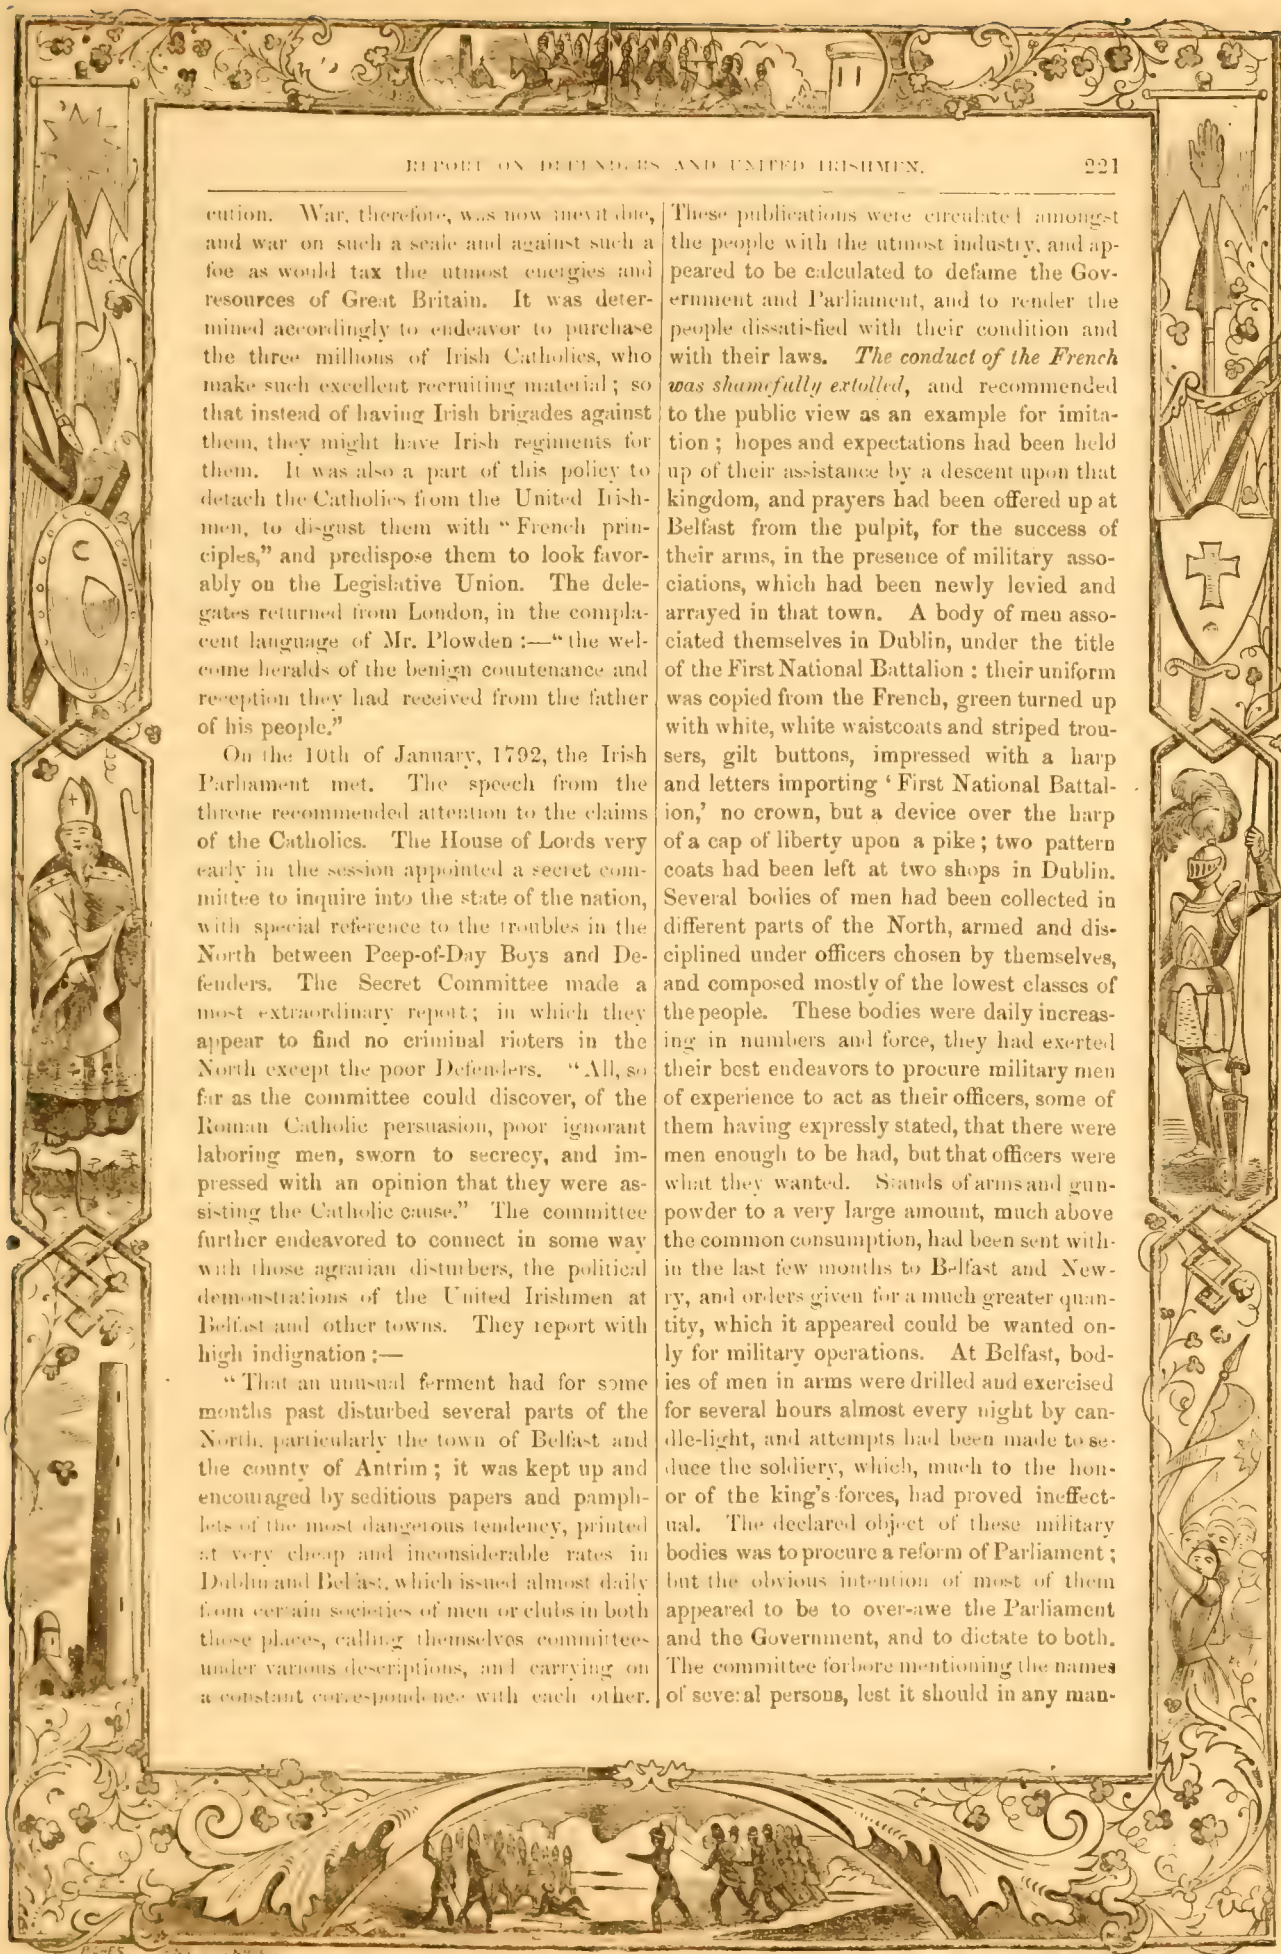 REPORT ON DEFENDERS AND UNITED IRISHMEN.
221
cution. War, therefore, was now inevitable,
and war on such a scale and against such a
foe as would tax the utmost energies and
resources of Great Britain. It was deter-
mined accordingly to endeavor to purchase
the three millions of Irish Catholics, who
make such excellent recruiting material; so
that instead of having Irish brigades against
them, they might have Irish regiments for
them. It was also a part of this policy to
detach the Catholics from the United Irish-
men, to disgust them with “French prin-
ciples,” and predispose them to look favor-
ably on the Legislative Union. The dele-
gates returned from London, in the compla-
cent language of Mr. Plowden:—“the wel-
come heralds of the benign countenance and
reception they had received from the father
of his people.”
On the 10th of January, 1792, the Irish
Parliament met. The speech from the
throne recommended attention to the claims
of the Catholics. The House of Lords very
early in the session appointed a secret com-
mittee to inquire into the state of the nation,
with special reference to the troubles in the
North between Peep-of-Day Boys and De-
fenders. The Secret Committee made a
most extraordinary report; in which they
appear to find no criminal rioters in the
North except the poor Defenders. “All, so
far as the committee could discover, of the
Roman Catholic persuasion, poor ignorant
laboring men, sworn to secrecy, and im-
pressed with an opinion that they were as-
sisting the Catholic cause.” The committee
further endeavored to connect in some way
with those agrarian disturbers, the political
demonstrations of the United Irishmen at
Belfast and other towns. They report with
high indignation:—
“That an unusual ferment had for some
months past disturbed several parts of the
North, particularly the town of Belfast and
the county of Antrim; it was kept up and
encouraged by seditious papers and pamph-
lets of the most dangerous tendency, printed
at very cheap and inconsiderable rates in
Dublin and Belfast, which issued almost daily
from certain societies of men or clubs in both
those places, calling themselves committees
under various descriptions, and carrying on
a constant correspondence with each other.
These publications were circulated amongst
the people with the utmost industry, and ap-
peared to be calculated to defame the Gov-
ernment and Parliament, and to render the
people dissatisfied with their condition and
with their laws. The conduct of the French
was shamefully extolled, and recommended
to the public view as an example for imita-
tion; hopes and expectations had been held
up of their assistance by a descent upon that
kingdom, and prayers had been offered up at
Belfast from the pulpit, for the success of
their arms, in the presence of military asso-
ciations, which had been newly levied and
arrayed in that town. A body of men asso-
ciated themselves in Dublin, under the title
of the First National Battalion: their uniform
was copied from the French, green turned up
with white, white waistcoats and striped trou-
sers, gilt buttons, impressed with a harp
and letters importing ‘First National Battal-
ion,’ no crown, but a device over the harp
of a cap of liberty upon a pike; two pattern
coats had been left at two shops in Dublin.
Several bodies of men had been collected in
different parts of the North, armed and dis-
ciplined under officers chosen by themselves,
and composed mostly of the lowest classes of
the people. These bodies were daily increas-
ing in numbers and force, they had exerted
their best endeavors to procure military men
of experience to act as their officers, some of
them having expressly stated, that there were
men enough to be had, but that officers were
what they wanted. Stands of arms and gun-
powder to a very large amount, much above
the common consumption, had been sent with-
in the last few months to Belfast and New-
ry, and orders given for a much greater quan-
tity, which it appeared could be wanted on-
ly for military operations. At Belfast, bod-
ies of men in arms were drilled and exercised
for several hours almost every night by can-
dle-light, and attempts had been made to se-
duce the soldiery, which, much to the hon-
or of the king's forces, had proved ineffect-
ual. The declared object of these military
bodies was to procure a reform of Parliament;
but the obvious intention of most of them
appeared to be to over-awe the Parliament
and the Government, and to dictate to both.
The committee forbore mentioning the names
of several persons, lest it should in any man-